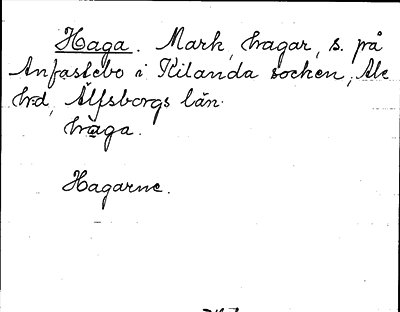 Haga. Mark, hagar, s. på
Anfastebo i Kilanda socken, Ale
hrd, Älfsborgs län.
hàga.
Hagarne.